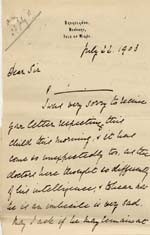 Isle of Wight.
July 22. 1903
Dear Sir
I was very sorry to receive
your letter respecting this
child this morning. It has
come so unexpectedly too, as the
doctors here thought so differently
of his intelligence, &
he is an imbecile is very sad.
May I ask if he may remain at